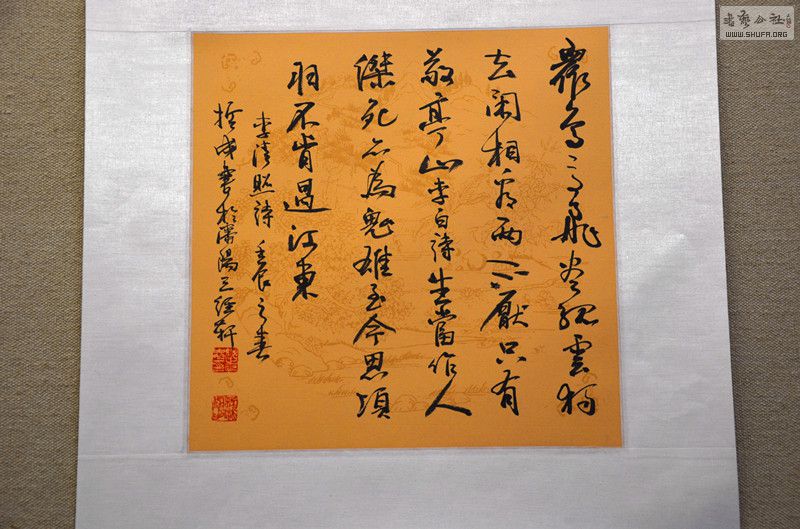 眾鳥高飛盡孤雲獨
去閑相看兩不厭只有
敬亭山李白詩生當作人
傑死亦為鬼雄至今思項
羽不肯過江東
李清照詩 壬辰之春
哲成書於瀋陽三經軒
書藝公社
WWW.SHUFA.ORG